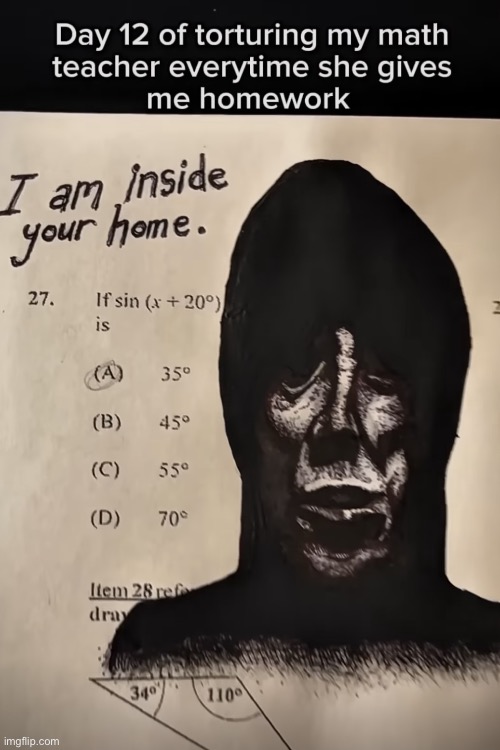 Day 12 of torturing my math
teacher everytime she gives
me homework
I am inside
your home.
27. If sin (x + 20°)
is
(A) 35°
(B) 45°
(C) 55°
(D) 70°
Item 28
34° 110°
imgflip.com